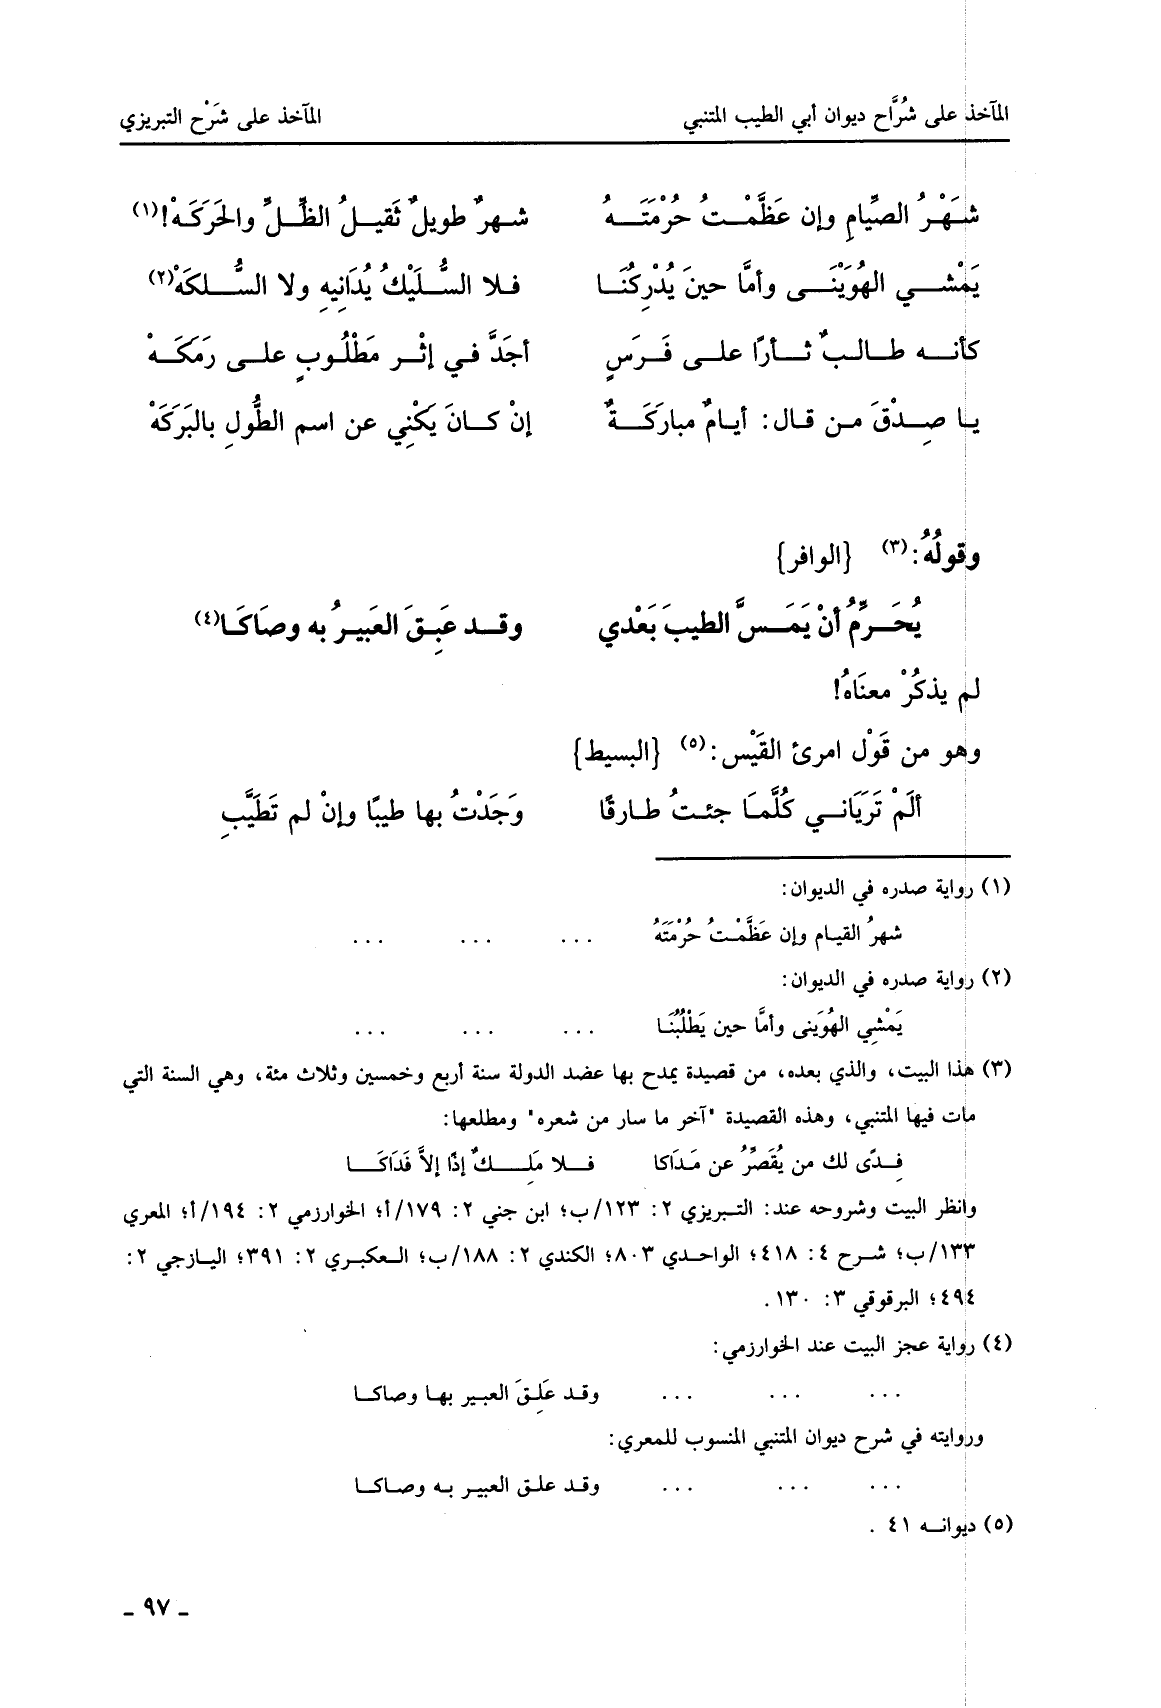 المآخذ على شُرَّاح ديوان أبي الطيب المتنبي المآخذ على شَرْح التبريزي
شَهْرُ الصِّيامِ وإن عَظَّمْتُ حُرْمَتَهُ شهرٌ طويلٌ ثَقيلُ الظِّلِّ والحَرَكَهْ!(١)
يَمْشي الهُوَيْنَى وأمَّا حينَ يُدْرِكُنَا فلا السُّلَيْكُ يُدَانِيهِ ولا السُّلكَهْ(٢)
كأنه طالبٌ ثأرًا على فَرَسٍ أجَدَّ في إثْر مَطْلُوبٍ على رَمَكَهْ
يا صِدْقَ من قال: أيامٌ مبارَكَةٌ إنْ كانَ يَكْنِي عن اسم الطُّولِ بالبَرَكَهْ
وقولُهُ:(٣) {الوافر}
يُحَرِّمُ أنْ يَمَسَّ الطيبَ بَعْدي وقد عَبِقَ العَبيرُ به وصَاكَا(٤)
لم يذكُرْ معنَاهُ!
وهو من قَوْل امرئ القَيْس:(٥) {البسيط}
ألَمْ تَرَيَاني كُلَّمَا جئتُ طارقًا وَجَدْتُ بها طيبًا وإنْ لم تَطَيَّبِ
(١) رواية صدره في الديوان:
شهرُ القيام وإن عَظَّمْتُ حُرْمَتَهُ ... ... ...
(٢) رواية صدره في الديوان:
يَمْشِي الهُوَينى وأمَّا حين يَطْلُبُنَا ... ... ...
(٣) هذا البيت، والذي بعده، من قصيدة يمدح بها عضد الدولة سنة أربع وخمسين وثلاث مئة، وهي السنة التي
مات فيها المتنبي، وهذه القصيدة "آخر ما سار من شعره" ومطلعها:
فِدًى لك من يُقَصِّرُ عن مَدَاكا فلا مَلِكٌ إذًا إلاَّ فَدَاكَا
وانظر البيت وشروحه عند: التبريزي ٢: ١٢٣/ب؛ ابن جني ٢: ١٧٩/أ؛ الخوارزمي ٢: ١٩٤/أ؛ المعري
١٣٣/ب؛ شرح ٤: ٤١٨؛ الواحدي ٨٠٣؛ الكندي ٢: ١٨٨/ب؛ العكبري ٢: ٣٩١؛ اليازجي ٢:
٤٩٤؛ البرقوقي ٣: ١٣٠.
(٤) رواية عجز البيت عند الخوارزمي:
... ... ... وقد عَلِقَ العبير بها وصاكا
وروايته في شرح ديوان المتنبي المنسوب للمعري:
... ... ... وقد علق العبير به وصاكا
(٥) ديوانه ٤١ .
ـ ٩٧ ـ